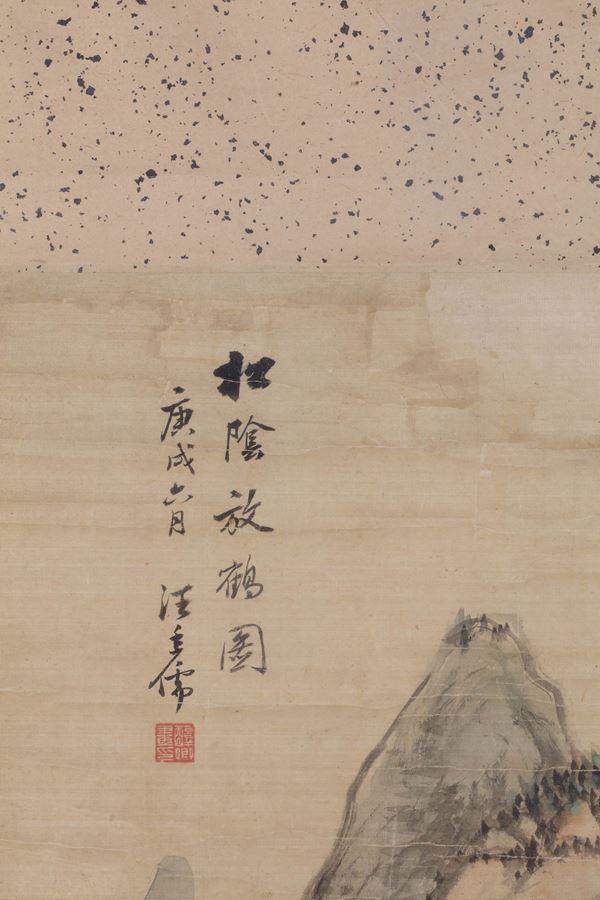 松陰放鶴圖
庚戌六月 汪 儒